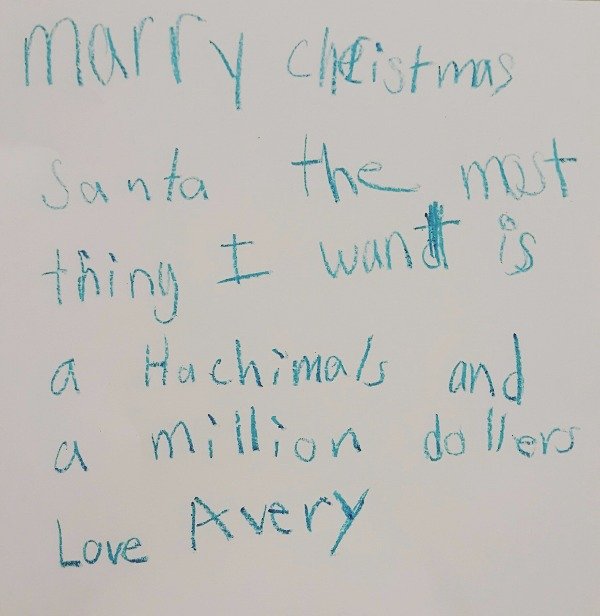 Marry Christmas
Santa the most
thing I want is
a Hachimals and
a million dollers
Love Avery